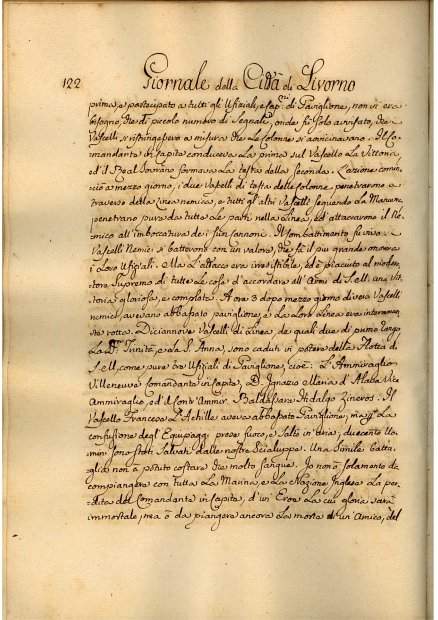 122 Giornale della Città di Livorno
prima, e partecipato a tutti gli Ufiziali, e Cap:ni di Paviglione, non vi era
bisogno, che di piccolo numero di Segnali, onde fù solo avvisato, che i
Vascelli si ristringessero a misura che le Colonne si avvicinavano. Il Co-
mandante in Capite conduceva la prima sul Vascello La Vittoria,
ed il Real Sovrano formava la testa della Seconda. L'azione comin-
ciò a mezzo giorno, i due Vascelli di testa delle Colonne penetrarono a
traverso della Linea nemica, e tutti gl'altri Vascelli seguendo La Manovra
penetrano pure da tutte le parti nella Linea, ed attaccarono il Ne-
mico all'imboccatura dei suoi Cannoni. Il Combattimento fù vivo: i
Vascelli Nemici si batterono con un valore, che fà il più grande onore a
i Loro Ufiziali. Ma L'attacco era irresistibile, ed è piaciuto al modera-
tore Supremo di tutte le Cose d'accordare all'Armi di S. M. una Vit-
toria gloriosa, e completa. A ore 3 dopo mezzo giorno diversi Vascelli
nemici avevano abbassato paviglione, e la Loro Linea era interamen-
te rotta. Diciannove Vascelli di Linea, de quali due di primo rango
La SS. Trinità, e la S. Anna, sono caduti in potere della Flotta di
S. M., come pure tre Ufiziali di Paviglione, cioè: L'Ammiraglio
Villeneuve Comandante in Capite, D. Ignazio Maria d'Alaba Vice
Ammiraglio, ed il Contr'Ammir. Baldassara Hidalgo Zineros. Il
Vascello Francese L'Achille aveva abbassato Paviglione, ma La
confusione degl'Equipaggi prese fuoco, e saltò in aria; duecento Uo-
mini sono stati Salvati dalle nostre Scialuppe. Una simile batta-
glia non à potuto costare che molto sangue. Io non ò solamente da
compiangere con tutta La Marina, e La Nazione Inglese La per-
dita del Comandante in Capite, d'un'Eroe La cui gloria sarà
immortale, ma ò da piangere ancora La morte di un'Amico, del